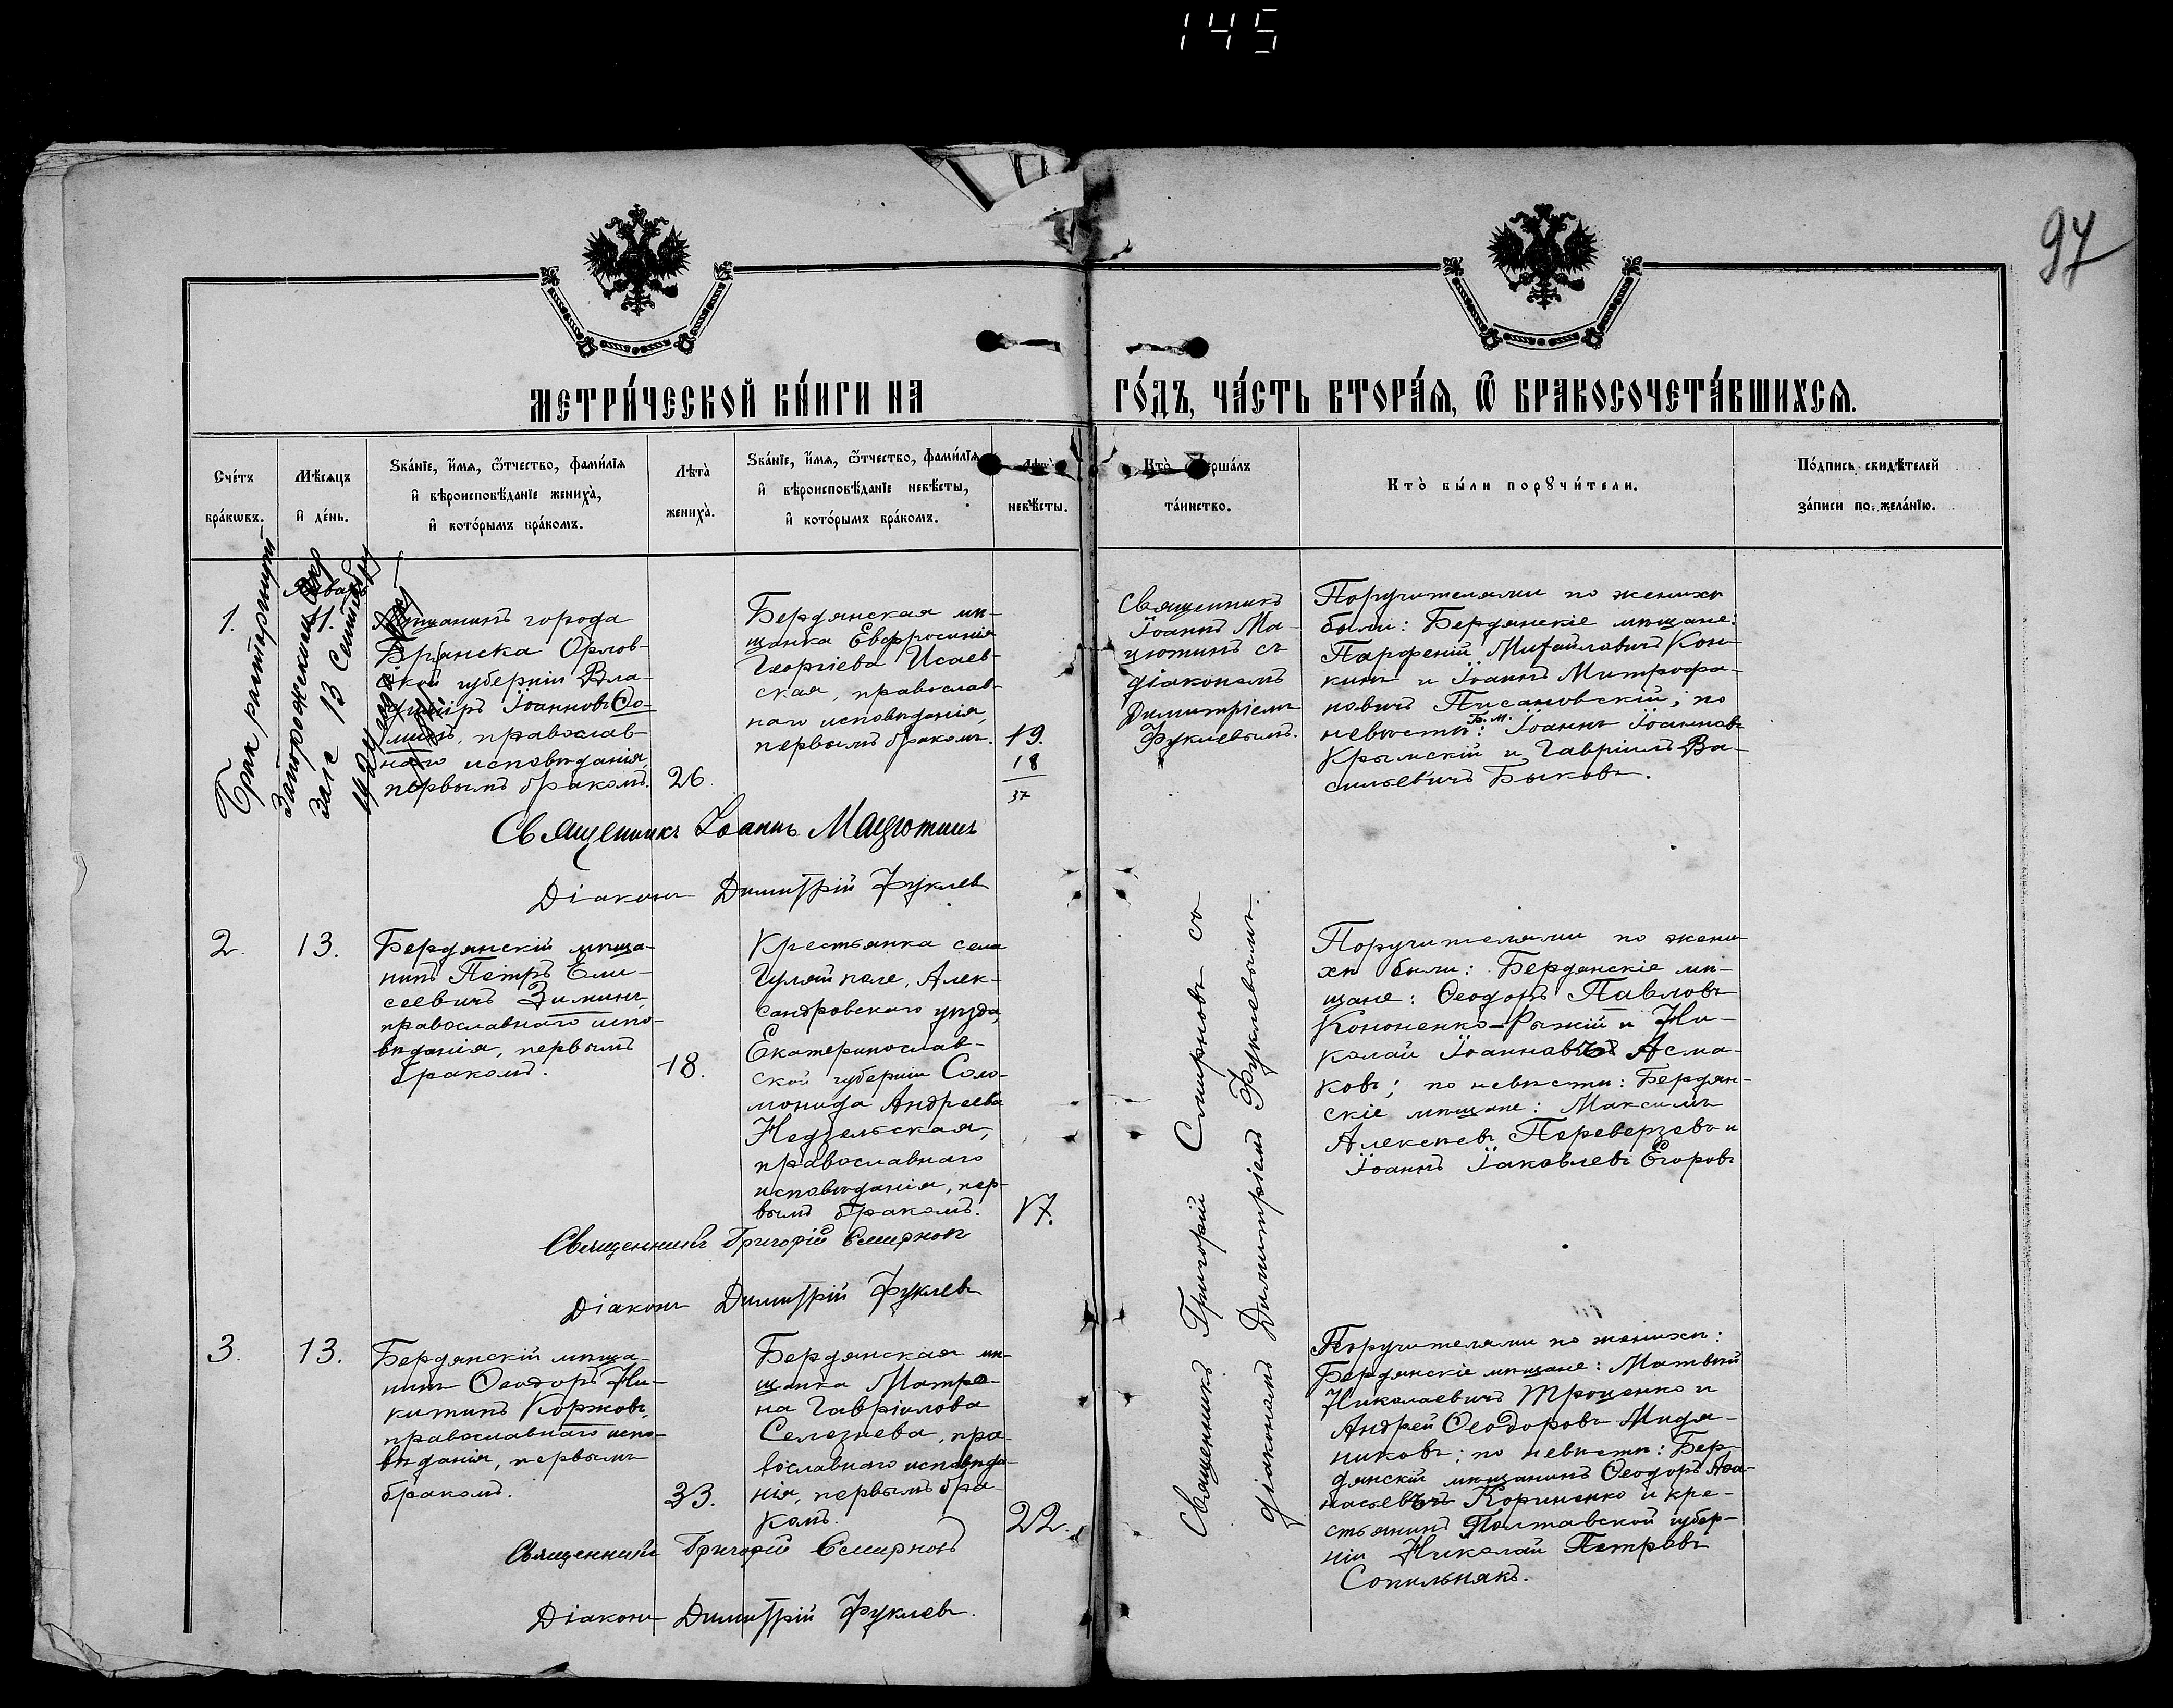 145
97
МЕТРИ́ЧЕСКОЙ КН́ИГИ НА
ГО́ДЪ, ЧА́СТЬ ВТОРА́Я, Ѿ БРАКОСОЧЕТА́ВШИХСЯ.
Сче́тъ
бра́кѡвъ.
Мѣ́сяцъ
и҆ де́нь.
Ѕва́нїе, и҆́мя, ѻ҆́тчество, фами́лїя
и҆ вѣроисповѣ́данїе жениха̀,
и҆ кото́рымъ бра́комъ.
Лѣта̀
жениха̀.
Ѕва́нїе, и҆́мя, ѻ҆́тчество, фами́лїя
и҆ вѣроисповѣ́данїе невѣ́сты,
и҆ кото́рымъ бра́комъ.
Лѣта̀
невѣ́сты.
Кто̀
та́инство.
Кто̀ бы́ли порꙋчи́тели.
По́дпись свидѣ́телей
за́писи по жела́нїю.
Брак расторгнут
Запорожским Окр
Загс 13 Сентября
192
1.
Январь
1.
Мѣщанинъ города
Брянска Орлов-
ской губерніи Вла-
димiръ Іоанновъ Ѳо-
минъ, православ
наго исповѣданія,
первымъ бракомъ.
26.
Бердянская мѣ-
щанка Евфросинія
Георгіева Исаев-
ская, православ-
наго исповѣданія,
первымъ бракомъ.
19.
18
37
Священникъ
Іоаннъ Ма-
цютинъ съ
діакономъ
Димитріемъ
Фуклевымъ.
Поручителями по женихѣ
были: Бердянскіе мѣщане:
Парфеній Михайловичъ Кон-
кинъ и Іоаннъ Митрофа-
новичъ Писановскій; по
невѣстѣ: Б. м. Іоаннъ Іоанновъ
Крымскій и Гавріилъ Ва-
сильевичъ Быковъ.
Священникъ Іоаннъ Мацютинъ
Діаконъ Димитрій Фуклевъ
2.
13.
Бердянскій мѣща-
нинъ Петръ Ели-
сеевичъ Зиминъ,
православнаго испо-
вѣданія, первымъ
бракомъ.
18.
Крестьянка села
Гуляй поле, Алек-
сандровскаго уѣзда,
Екатеринослав-
ской губерніи Соло-
монида Андреева
Недзельская,
православнаго
исповѣданія, пер-
вымъ бракомъ.
17.
Священникъ Григорій Смирновъ со
діакономъ Димитріемъ Фуклевымъ.
Поручителями по жени-
хѣ были: Бердянскіе мѣ-
щане: Ѳеодоръ Павловъ
Кононенко-Рыжій и Ни-
колай Іоанновъ Асма-
ковъ; по невѣстѣ: Бердян-
скіе мѣщане: Максимъ
Алексѣевъ Переверзевъ и
Іоаннъ Іаковлевъ Егоровъ
Священникъ Григорій Смирновъ
Діаконъ Димитрій Фуклевъ
3.
13.
Бердянскій мѣща-
нинъ Ѳеодоръ Ни-
китинъ Коржовъ,
православнаго испо-
вѣданія, первымъ
бракомъ.
33.
Бердянская мѣ-
щанка Матро-
на Гавріилова
Селезнева, пра-
вославнаго исповѣда-
нія, первымъ бра-
комъ.
22.
Поручителями по женихѣ:
Бердянскіе мѣщане: Матвей
Николаевичъ Троценко и
Андрей Ѳеодоровъ Мидя-
никовъ; по невѣстѣ: Бер-
дянскій мѣщанинъ Ѳеодоръ Аѳа-
насьевъ Кориненко и кре-
стьянинъ Полтавской губер-
ніи Николай Петровъ
Сопильнякъ.
Священникъ Григорій Смирновъ
Діаконъ Димитрій Фуклевъ.